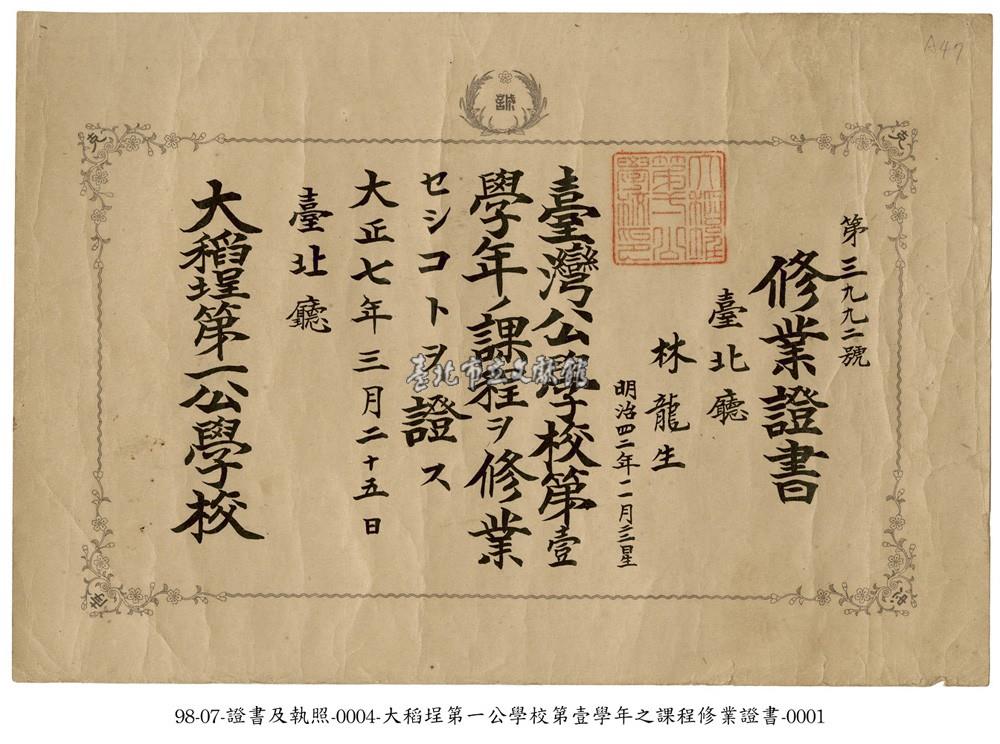 A47
誠
第三九九二號
修業證書
臺北廳
林龍生
明治四二年一月三星
臺灣公學校第壹
學年ノ課程ヲ修業
セシコトヲ證ス
大正七年三月二十五日
臺北廳
大稻埕第一公學校
臺北市立文獻館
98-07-證書及執照-0004-大稻埕第一公學校第壹學年之課程修業證書-0001